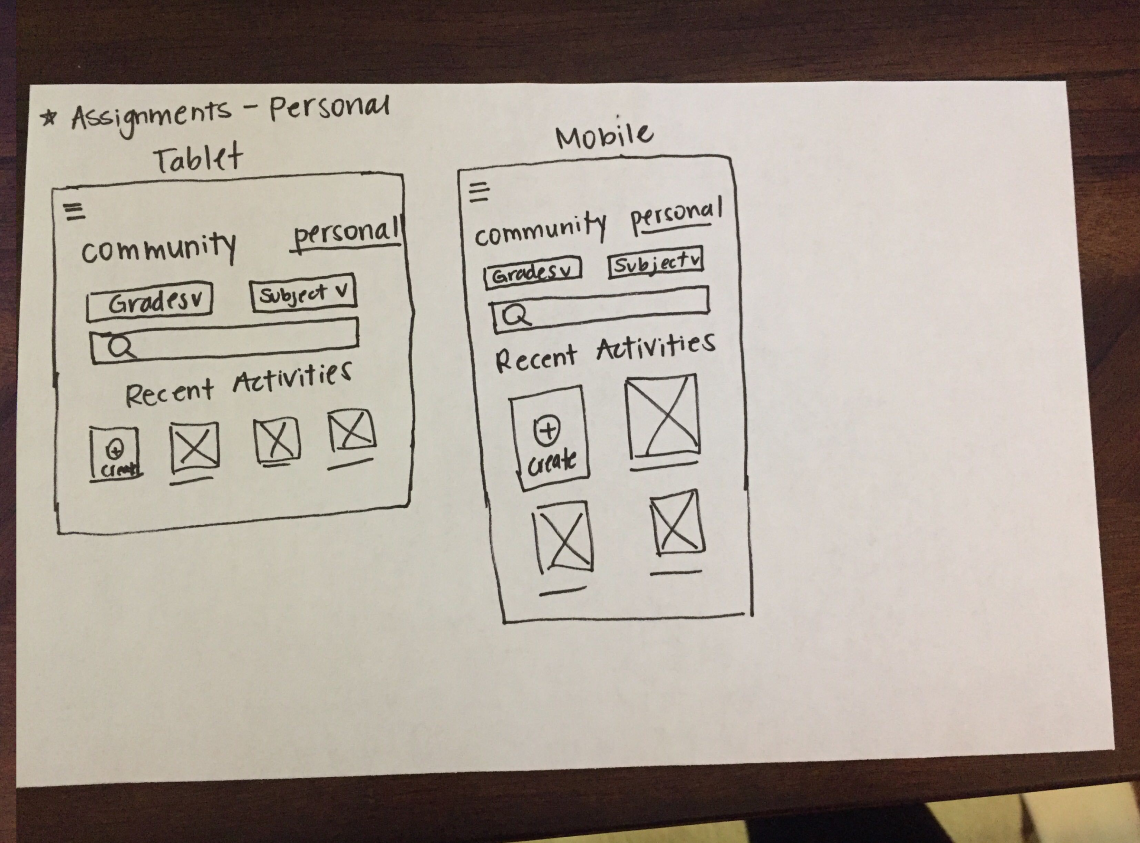 * Assignments - Personal
Tablet
community personal
Grades v Subject v
Recent Activities
Create
Mobile
community personal
Grades v Subject v
Recent Activities
Create